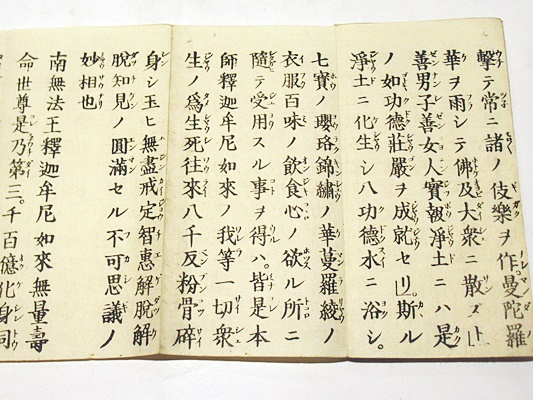 撃テ常ニ諸ノ伎樂ヲ作曼陀羅
華ヲ雨シテ佛及大衆ニ散ズト
善男子善女人寶報淨土ニハ是
ノ如功德莊嚴ヲ成就セリ斯ル
淨土ニ化生シ八功德水ニ浴シ。
七寶ノ瓔珞錦繡ノ華蔓羅綾ノ
衣服百味ノ飮食心ノ欲ル所ニ
隨テ受用スル事ヲ得ハ。皆是本
師釋迦牟尼如來ノ我等一切衆
生ノ爲生死往來八千反粉骨碎
身シ玉ヒ無盡戒定智惠解脫解
脫知見ノ圓滿セル不可思議ノ
妙相也
南無法王釋迦牟尼如來無量壽
命世尊是乃第三。千百億化身同